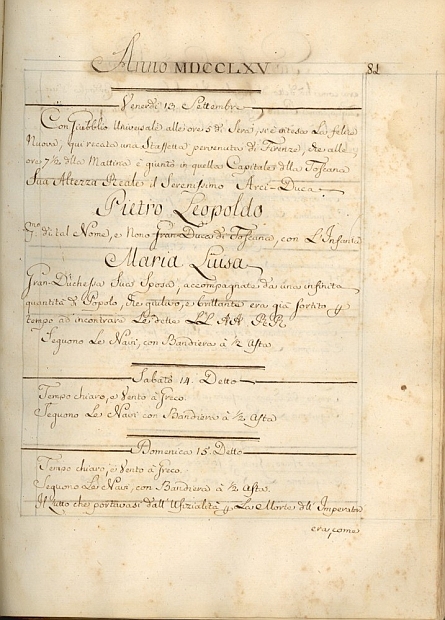 Anno MDCCLXV
81
Venerdì 13. Settembre
Con Giubbilo Universale alle ore 5 di Sera, s'è intesa La felice
Nuova, qui recata una Staffetta pervenuta di Firenze, che alle
ore 7½ della Mattina è giunto in quella Capitale della Toscana
Sua Altezza Reale il Serenissimo Arci-Duca
Pietro Leopoldo
P.mo di tal Nome, e Nono Gran-Duca di Toscana, con L'Infanta
Maria Luisa
Gran-Duchessa Sua Sposa, accompagnate da una infinita
quantità di Popolo, che giulivo, e brillante era già sortito p
tempo ad incontrare Le dette LL. AA. RR.
Seguono Le Navi, con Bandiera à ½ Asta
Sabato 14. Detto
Tempo chiaro, e Vento à Greco.
Seguono Le Navi con Bandiera à ½ Asta
Domenica 15. Detto
Tempo chiaro, e Vento à Greco.
Seguono Le Navi, con Bandiera à ½ Asta.
Il Lutto che portavasi dall' Ufizialità p. La Morte dell' Imperatore
era, come